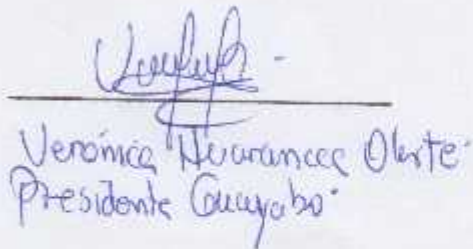 Verónica Huarancca Olarte
Presidente Guayabo